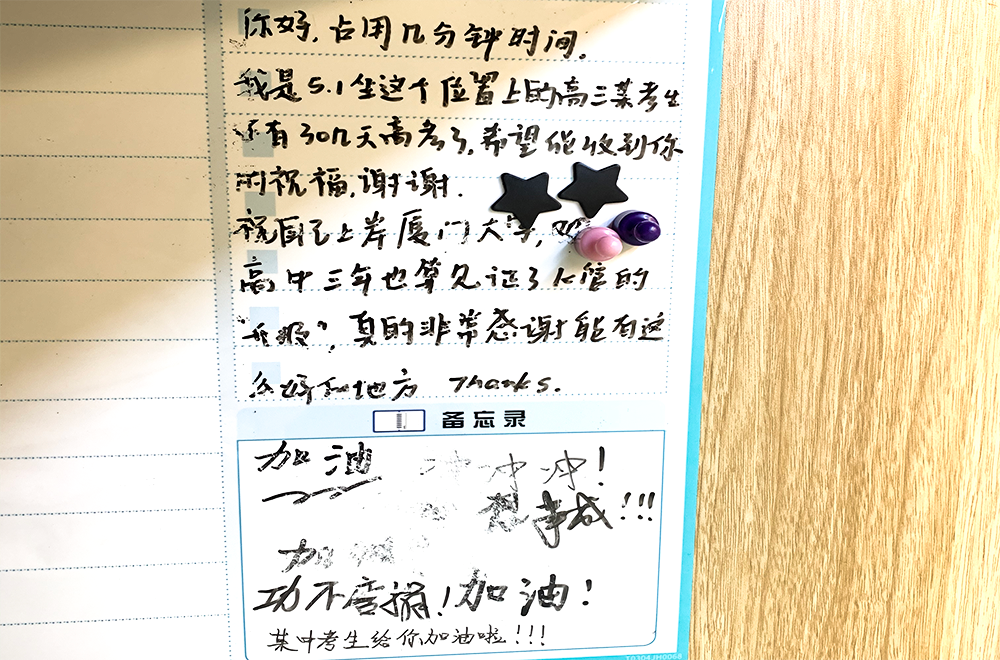 你好,占用几分钟时间.
我是5.1坐这个位置上的高三某考生
还有30几天高考了,希望能收到你
的祝福,谢谢.
祝自己上岸厦门大学,
高中三年也算见证了 管的
,真的非常感谢能有这
么好的地方 Thanks.
备忘录
加油 冲冲冲!
想 成!!!
加油
功不唐捐!加油!
某中考生给你加油啦!!!
T0304JH0068